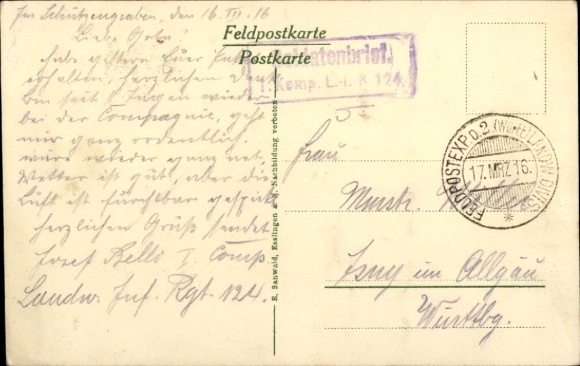 Im Schützengraben, den 16. III. 16
Liebe
habe gestern Euer
erhalten, herzlichen Dank
bin seit 8 Tagen wieder
bei der Compagnie, geht
mir ganz ordentlich.
wäre wieder ganz nett,
Wetter ist gut, aber die
Luft ist furchtbar
herzlichen Gruß sendet
Josef I. Comp.
Landw. Inf. Rgt. 124.
Feldpostkarte
Postkarte
Soldatenbrief.
1. Komp. L.-I. R 124.
E. Sanwald, Esslingen a. N. Nachbildung verboten
FELDPOSTEXP. D. 2. (WÜ) LANDW. DIVIS.
17. MRZ 16.
Frau
Isny im Allgäu
Württbg.